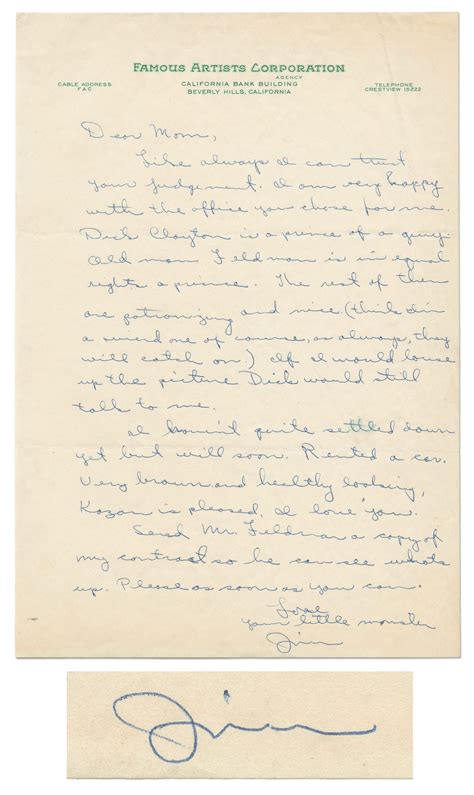 FAMOUS ARTISTS CORPORATION
AGENCY
CABLE ADDRESS
FAC
CALIFORNIA BANK BUILDING
BEVERLY HILLS, CALIFORNIA
TELEPHONE
CRESTVIEW 15222
Dear Mom,
Like always I can trust
your judgement. I am very happy
with the office you chose for me.
Dick Clayton is a prince of a guy.
Old man Feldman is in equal
rights a prince. The rest of them
are patronizing and nice (think I'm
a weird one of course, as always, they
will catch on) If I would louse
up the picture Dick would still
talk to me.
I havin't quite settled down
yet but will soon. Rented a car.
Very brown and healthy looking,
Kazan is pleased. I love you.
Send Mr. Feldman a copy of
my contract so he can see whats
up. Please as soon as you can.
Love
your little monster
Jim
Jim